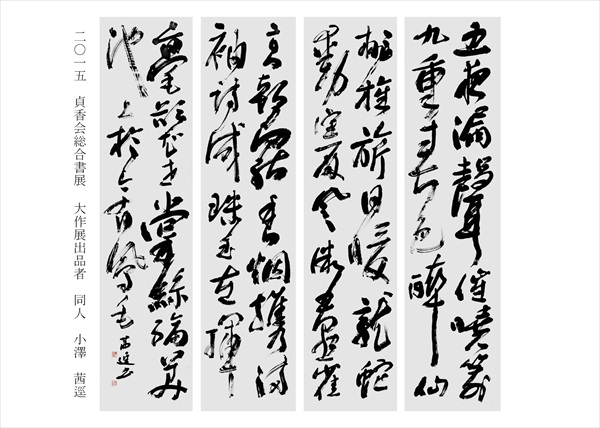 五夜漏聲催曉箭
九重春色醉仙
桃旌旂日暖龍蛇
動宮殿風微燕雀
高朝罷香烟携満
袖詩成珠玉在揮
毫欲知世掌絲綸美
池上於今有鳳毛 茜逕書
二〇一五 貞香会総合書展 大作展出品者 同人 小澤 茜逕